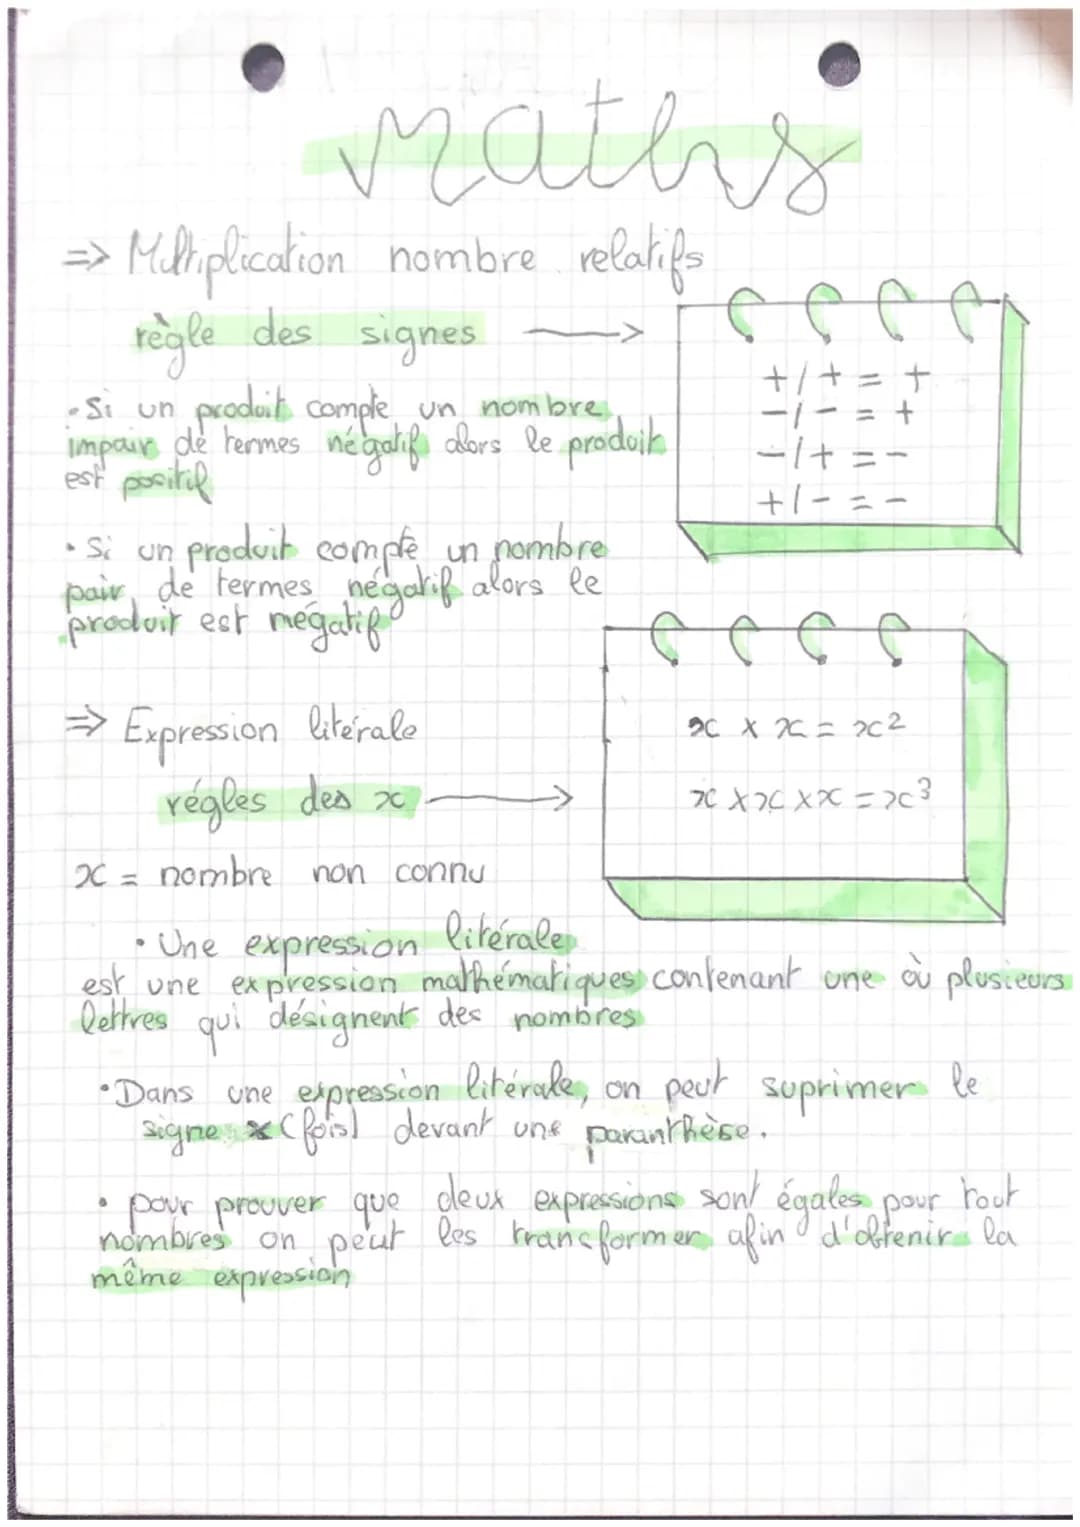 maths
=> Multiplication nombre relatifs
règle des signes →
+/+ = +
-/- = +
-/+ = -
+/- = -
• Si un produit compte un nombre
impair de termes négatif alors le produit
est positif
• Si un produit compte un nombre
pair de termes négatif alors le
produit est négatif
=> Expression litérale
régles des x →
x × x = x²
x × x × x = x³
x = nombre non connu
• Une expression litérale
est une expression mathématiques contenant une où plusieurs
lettres qui désignent des nombres
• Dans une expression litérale, on peut suprimer le
signe × (fois) devant une paranthèse.
• pour prouver que deux expressions sont égales pour tout
nombres on peut les transformer afin d'obtenir la
même expression